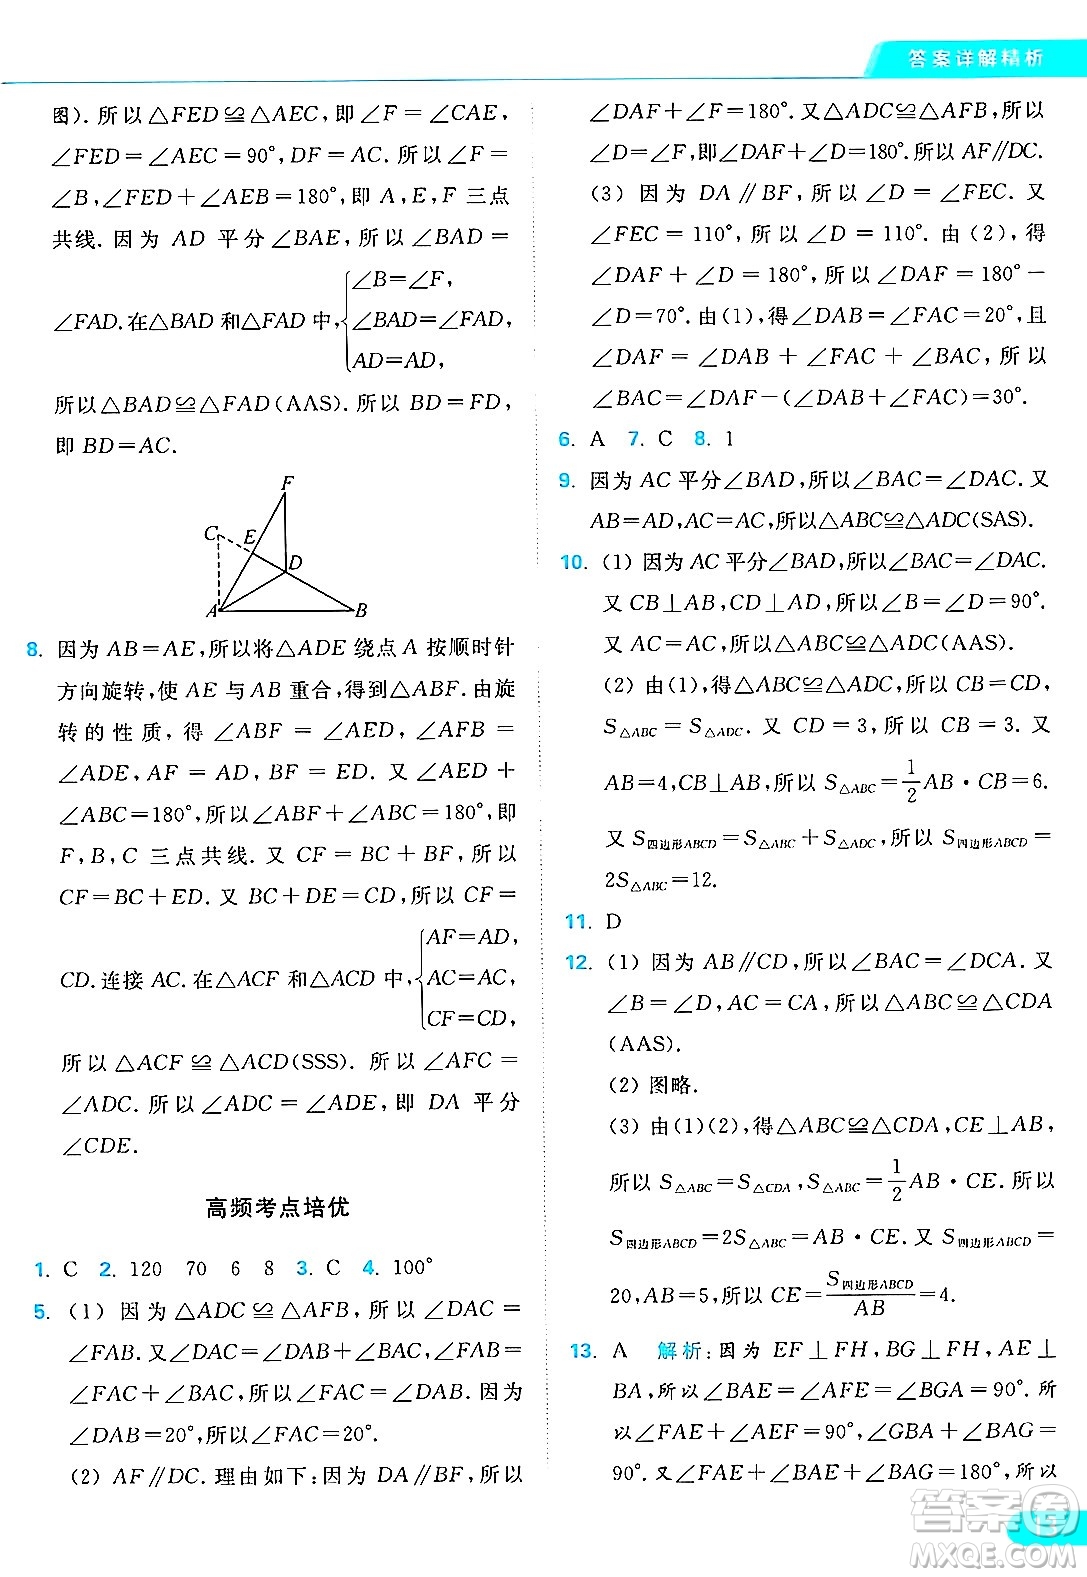 答案详解精析
图). 所以△FED≌△AEC,即∠F=∠CAE,
∠FED=∠AEC=90°,DF=AC. 所以∠F=
∠B,∠FED+∠AEB=180°,即 A,E,F 三点
共线. 因为 AD 平分∠BAE,所以∠BAD=
∠FAD. 在△BAD 和△FAD 中,{∠B=∠F,
∠BAD=∠FAD,
AD=AD,
所以△BAD≌△FAD(AAS). 所以 BD=FD,
即 BD=AC.
F
C E
D
A B
8. 因为 AB=AE,所以将△ADE 绕点 A 按顺时针
方向旋转,使 AE 与 AB 重合,得到△ABF. 由旋
转的性质,得∠ABF=∠AED,∠AFB=
∠ADE,AF=AD,BF=ED. 又∠AED+
∠ABC=180°,所以∠ABF+∠ABC=180°,即
F,B,C 三点共线. 又 CF=BC+BF,所以
CF=BC+ED. 又 BC+DE=CD,所以 CF=
CD. 连接 AC. 在△ACF 和△ACD 中,{AF=AD,
AC=AC,
CF=CD,
所以△ACF≌△ACD(SSS). 所以∠AFC=
∠ADC. 所以∠ADC=∠ADE,即 DA 平分
∠CDE.
高频考点培优
1. C 2. 120 70 6 8 3. C 4. 100°
5. (1) 因为△ADC≌△AFB,所以∠DAC=
∠FAB. 又∠DAC=∠DAB+∠BAC,∠FAB=
∠FAC+∠BAC,所以∠FAC=∠DAB. 因为
∠DAB=20°,所以∠FAC=20°.
(2) AF∥DC. 理由如下:因为 DA∥BF,所以
∠DAF+∠F=180°. 又△ADC≌△AFB,所以
∠D=∠F,即∠DAF+∠D=180°. 所以 AF∥DC.
(3) 因为 DA∥BF,所以∠D=∠FEC. 又
∠FEC=110°,所以∠D=110°. 由(2),得
∠DAF+∠D=180°,所以∠DAF=180°-
∠D=70°. 由(1),得∠DAB=∠FAC=20°,且
∠DAF=∠DAB+∠FAC+∠BAC,所以
∠BAC=∠DAF-(∠DAB+∠FAC)=30°.
6. A 7. C 8. 1
9. 因为 AC 平分∠BAD,所以∠BAC=∠DAC. 又
AB=AD,AC=AC,所以△ABC≌△ADC(SAS).
10. (1) 因为 AC 平分∠BAD,所以∠BAC=∠DAC.
又 CB⊥AB,CD⊥AD,所以∠B=∠D=90°.
又 AC=AC,所以△ABC≌△ADC(AAS).
(2) 由(1),得△ABC≌△ADC,所以 CB=CD,
S△ABC=S△ADC. 又 CD=3,所以 CB=3. 又
AB=4,CB⊥AB,所以 S△ABC=1/2AB·CB=6.
又 S四边形ABCD=S△ABC+S△ADC,所以 S四边形ABCD=
2S△ABC=12.
11. D
12. (1) 因为 AB∥CD,所以∠BAC=∠DCA. 又
∠B=∠D,AC=CA,所以△ABC≌△CDA
(AAS).
(2) 图略.
(3) 由(1)(2),得△ABC≌△CDA,CE⊥AB,
所以 S△ABC=S△CDA,S△ABC=1/2AB·CE. 所以
S四边形ABCD=2S△ABC=AB·CE. 又 S四边形ABCD=
20,AB=5,所以 CE=S四边形ABCD/AB=4.
13. A 解析:因为 EF⊥FH,BG⊥FH,AE⊥
BA,所以∠BAE=∠AFE=∠BGA=90°. 所
以∠FAE+∠AEF=90°,∠GBA+∠BAG=
90°. 又∠FAE+∠BAE+∠BAG=180°,所以
答案圈